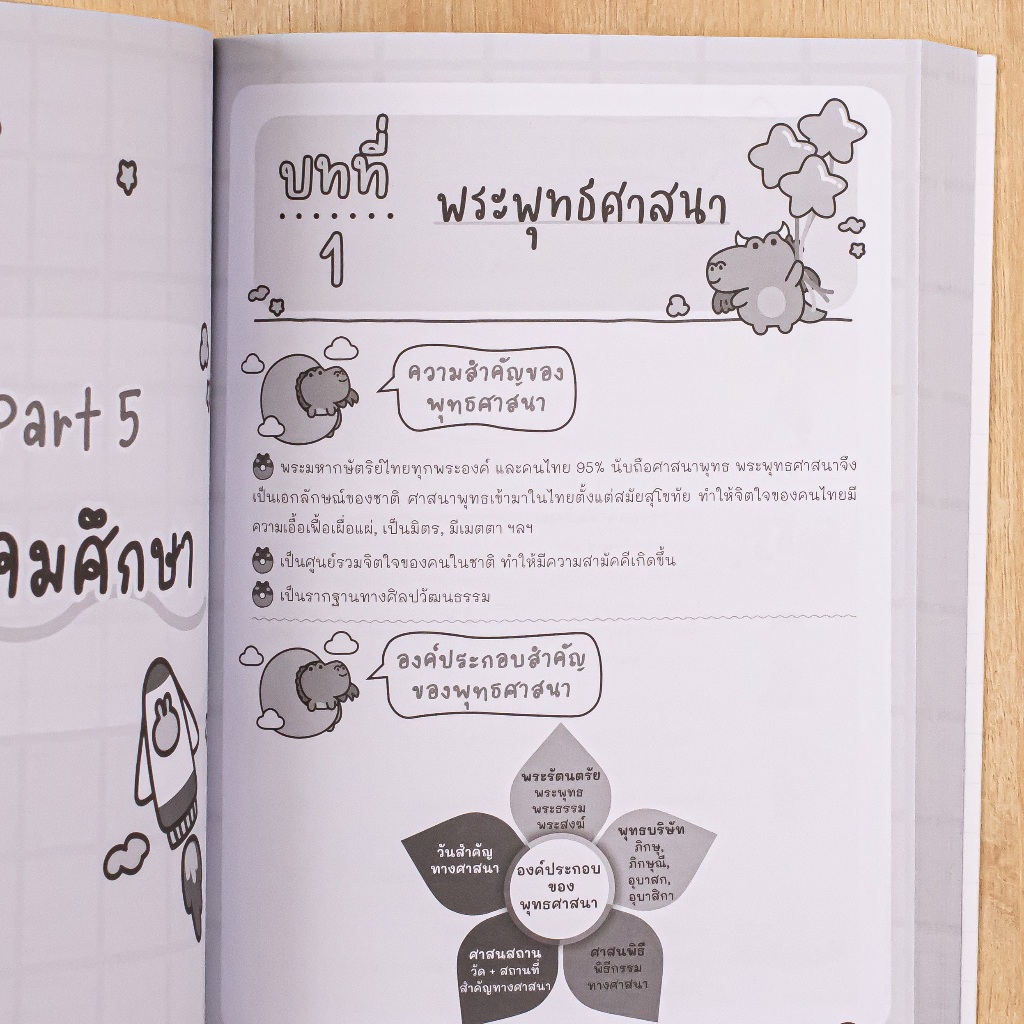 Part 5
บทที่
1
พระพุทธ์ศาสนา
ความสำคัญของ
พุทธศาสนา
พระมหากษัตริย์ไทยทุกพระองค์ และคนไทย 95% นับถือศาสนาพุทธ พระพุทธศาสนาจึง
เป็นเอกลักษณ์ของชาติ ศาสนาพุทธเข้ามาในไทยตั้งแต่สมัยสุโขทัย ทำให้จิตใจของคนไทยมี
ความเอื้อเฟื้อเผื่อแผ่, เป็นมิตร, มีเมตตา ฯลฯ
เป็นศูนย์รวมจิตใจของคนในชาติ ทำให้มีความสามัคคีเกิดขึ้น
เป็นรากฐานทางศิลปวัฒนธรรม
องค์ประกอบสำคัญ
ของพุทธศาสนา
พระรัตนตรัย
พระพุทธ
พระธรรม
พระสงฆ์
พุทธบริษัท
ภิกษุ,
ภิกษุณี,
อุบาสก,
อุบาสิกา
วันสำคัญ
ทางศาสนา
องค์ประกอบ
ของ
พุทธศาสนา
ศาสนสถาน
วัด + สถานที่
สำคัญทางศาสนา
ศาสนพิธี
พิธีกรรม
ทางศาสนา